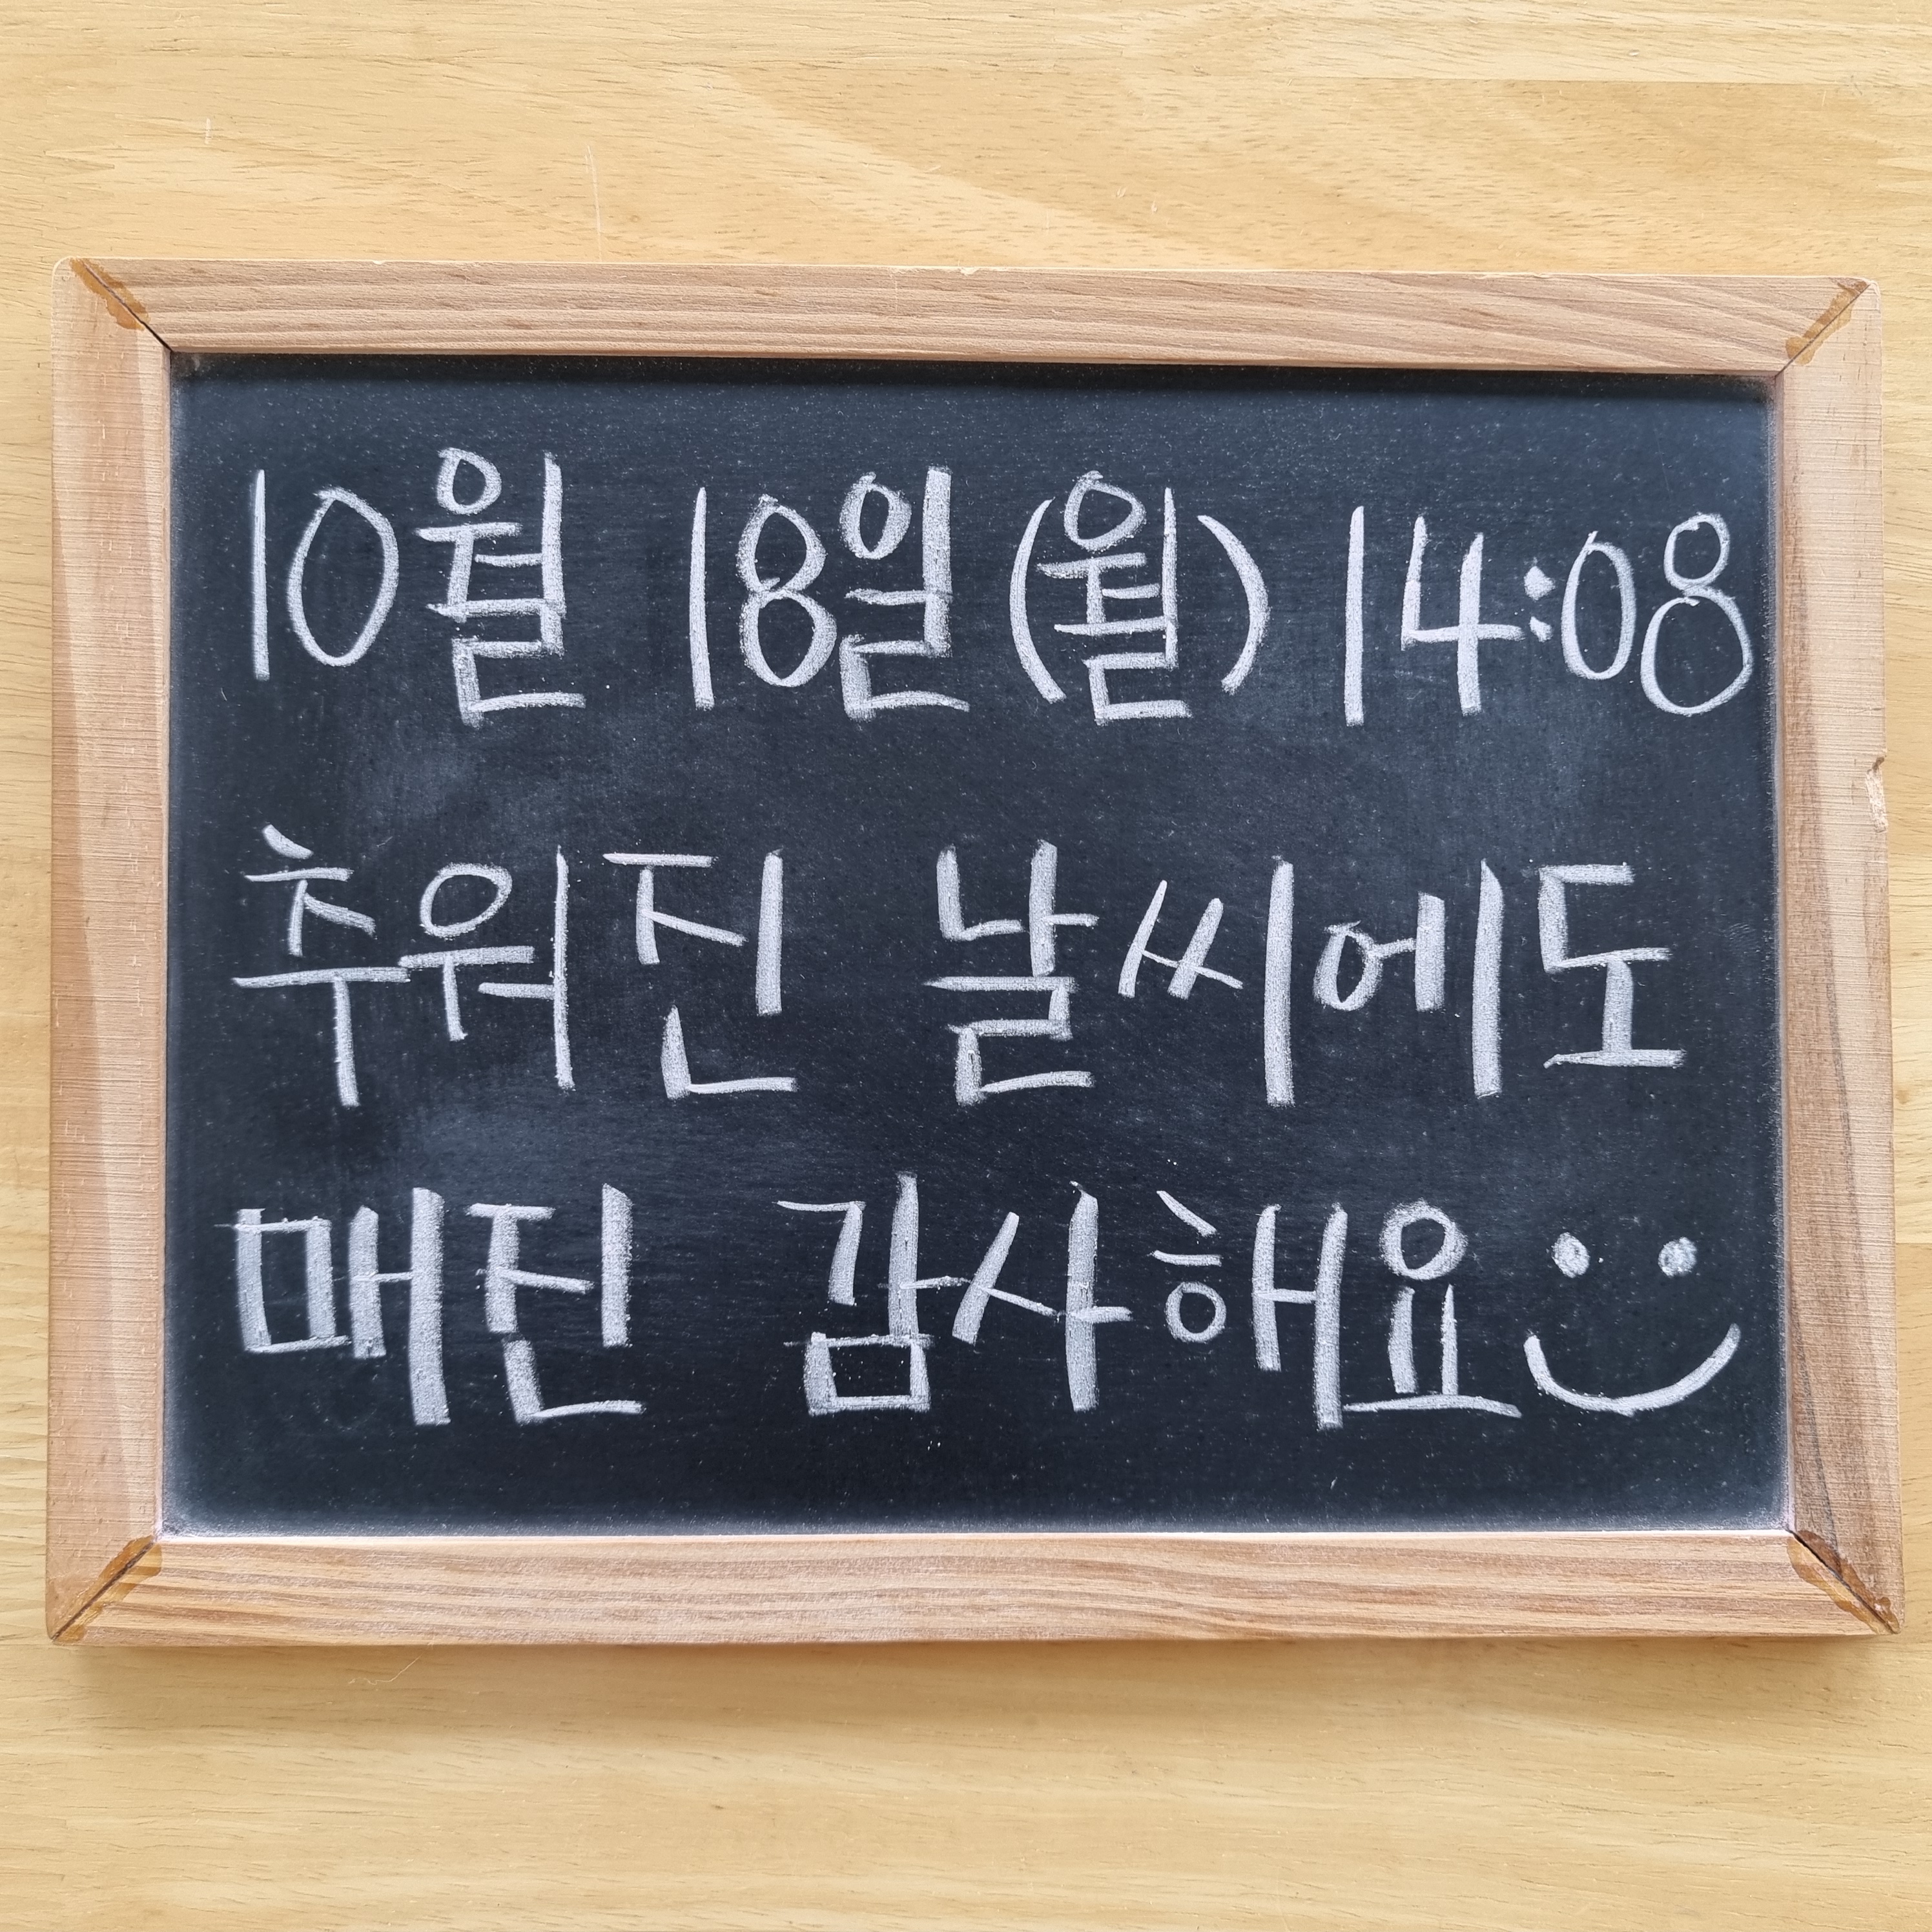 10월 18일(월) 14:08
추워진 날씨에도
매진 감사해요